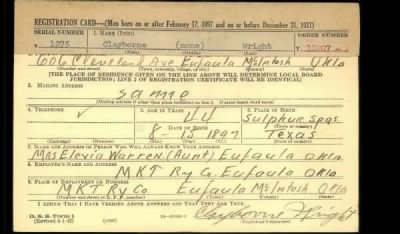 REGISTRATION CARD—(Men born on or after February 17, 1897 and on or before December 31, 1921)
SERIAL NUMBER 1. NAME (Print) ORDER NUMBER
1275 Clayborne (none) Wright 10207
606 Cleveland Ave Eufaula McIntosh Okla
(Number and street) (Town, township, village, or city) (County) (State)
[THE PLACE OF RESIDENCE GIVEN ON THE LINE ABOVE WILL DETERMINE LOCAL BOARD
JURISDICTION; LINE 2 OF REGISTRATION CERTIFICATE WILL BE IDENTICAL]
3. MAILING ADDRESS
same
(Mailing address if other than place indicated on line 2. If same insert word same)
4. TELEPHONE 5. AGE IN YEARS 6. PLACE OF BIRTH
44 Sulphur Spgs.
DATE OF BIRTH (Town or county)
8 15 1897 Texas
(Mo.) (Day) (Yr.) (State or country)
7. NAME AND ADDRESS OF PERSON WHO WILL ALWAYS KNOW YOUR ADDRESS
Mrs Elevia Warren (Aunt) Eufaula Okla.
8. EMPLOYER'S NAME AND ADDRESS
MKT Ry Co. Eufaula Okla
9. PLACE OF EMPLOYMENT OR BUSINESS
MKT Ry Co. Eufaula McIntosh Okla
(Number and street or R. F. D. number) (Town) (County) (State)
I AFFIRM THAT I HAVE VERIFIED ABOVE ANSWERS AND THAT THEY ARE TRUE.
D. S. S. Form 1
(Revised 4-1-42) (over)
Clayborne Wright
(Registrant's signature)